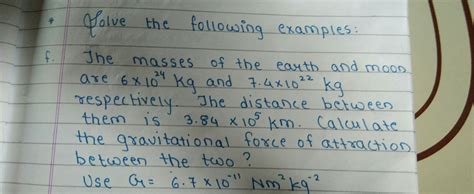 * Solve the following examples:
f. The masses of the earth and moon
are 6x10²⁴ Kg and 7.4x10²² kg
respectively. The distance between
them is 3.84 x10⁵ Km. Calculate
the gravitational force of attraction
between the two?
Use G= 6.7 x 10⁻¹¹ Nm² kg⁻²